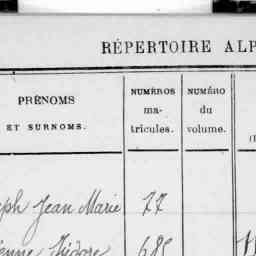 RÉPERTOIRE ALP
PRÉNOMS
ET SURNOMS.
NUMÉROS
ma-
tricules.
NUMÉRO
du
volume.
eph Jean Marie 77
enne Isidore 685